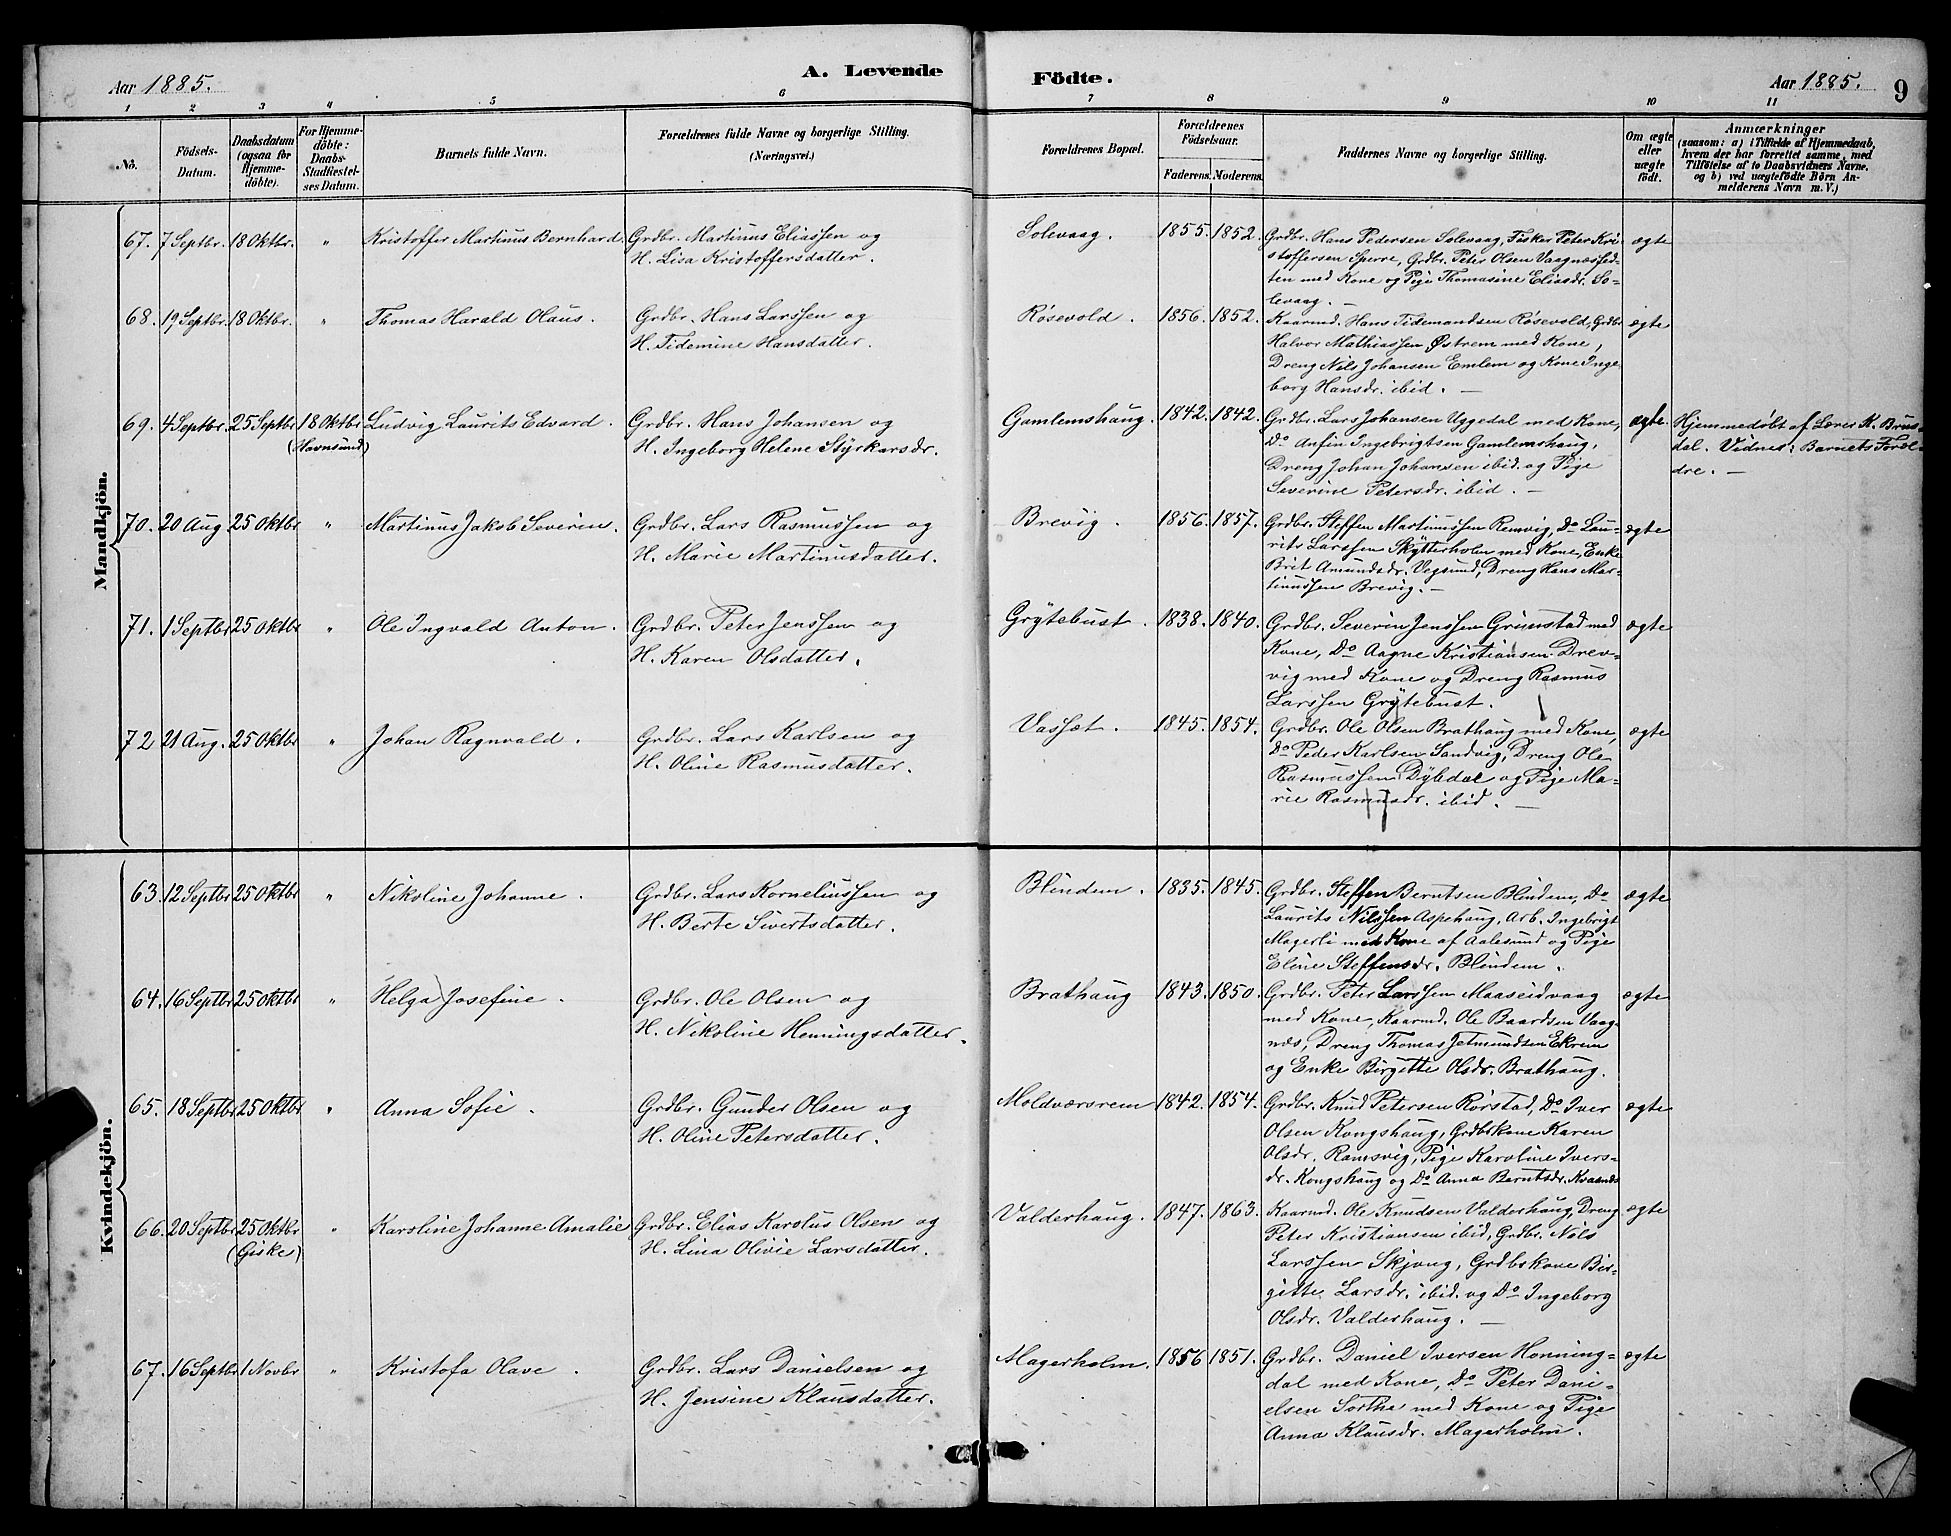 Aar 1885.
A. Levende
Födte.
Aar 1885.
9
1 2 3 4 5 6 7 8 9 10 11
No.
Födsels-
Datum.
Daabsdatum
(ogsaa for
Hjemme-
döbte).
For Hjemme-
döbte:
Daabs-
Stadfæstel-
ses Datum.
Barnets fulde Navn.
Forældrenes fulde Navne og borgerlige Stilling.
(Næringsvei.)
Forældrenes Bopæl.
Forældrenes
Födselsaar.
Faderens. Moderens.
Faddernes Navne og borgerlige Stilling.
Om ægte
eller
uægte
födt.
Anmærkninger
(saasom: a) i Tilfælde af Hjemmedaab,
hvem der har forrettet samme, med
Tilföielse af to Daabsvidners Navne,
og b) ved uægtefödte Börn An-
melderens Navn m. V.)
Mandkjön.
67. 7 Septbr. 18 Oktbr. " Kristoffer Martinus Bernhard. Grdbr. Martinus Eliassen og
H. Lisa Kristoffersdatter.
Solevaag. 1855. 1852. Grdbr. Hans Pedersen Solevaag, Fisker Peter Kri-
stoffersen Sperre, Grdbr. Peter Olsen Vaagnæs
ten med Kone og Pige Thomasine Eliasdr. So-
levaag. —
ægte
68. 19 Septbr. 18 Oktbr. " Thomas Harald Olaus. Grdbr. Hans Larssen og
H. Tidemine Hansdatter.
Røsevold. 1856. 1852. Kaarmd. Hans Tidemandsen Røsevold, Grdbr.
Halvor Mathiassen Østrem med Kone,
Dreng Nils Johansen Emlem og Kone Inge-
borg Hansdr. ibid. —
ægte
69. 4 Septbr. 25 Septbr. 18 Oktbr.
(Havnsund)
Ludvig Laurits Edvard. Grdbr. Hans Johansen og
H. Ingeborg Helene Styrkarsdr.
Gamlemshaug. 1842. 1842. Grdbr. Lars Johansen Uggedal med Kone,
Do Anfin Ingebrigtsen Gamlemshaug,
Dreng Johan Johansen ibid. og Pige
Severine Petersdr. ibid. —
ægte. Hjemmedøbt af Lærer K. Brus-
dal. Vidner: Barnets Foræl-
dre. —
70. 20 Aug. 25 Oktbr " Martinus Jakob Severin. Grdbr. Lars Rasmussen og
H. Marie Martinusdatter.
Brevig. 1856. 1857. Grdbr. Steffen Martinussen Remvig, Do Lau-
rits Larssen Skytterholm med Kone, Enke
Brit Amundsdr. Vegsund, Dreng Hans Mar-
tinussen Brevig. —
ægte
71. 1 Septbr 25 Oktbr " Ole Ingvald Anton. Grdbr. Peter Jenssen og
H. Karen Olsdatter.
Grytebust. 1838. 1840. Grdbr. Severin Jenssen Grimstad med
Kone, Do Aagne Kristiansen Drev-
vig med Kone og Dreng Rasmus
Larssen Grytebust.
ægte
72 21 Aug. 25 Oktbr " Johan Ragnvald. Grdbr. Lars Karlsen og
H. Oline Rasmusdatter.
Vassæt. 1845. 1854. Grdbr. Ole Olsen Brathaug med Kone,
Do Peder Karlsen Sandvig, Dreng Ole
Rasmussen Dybdal og Pige Ma-
rie Rasmusdr. ibid. —
ægte
Kvindekjön.
63. 12 Septbr 25 Oktbr " Nikoline Johanne. Grdbr. Lars Korneliussen og
H. Berte Sivertsdatter.
Blindem. 1835. 1845. Grdbr. Steffen Berntsen Blindem, Do
Laurits Nilssen Aspehaug, Arb. Ingebrigt
Magerli med Kone af Aalesund og Pige
Eline Steffensdr. Blindem.
ægte
64. 16 Septbr 25 Oktbr " Helga Josefine. Grdbr. Ole Olsen og
H. Nikoline Henningsdatter.
Brathaug 1843. 1850. Grdbr. Peter Larssen Maaseidvaag
med Kone, Kaarmd. Ole Baardsen Vaag-
næs, Dreng Thomas Jetmundsen Ekrem
og Enke Birgitte Olsdr. Brathaug.
ægte
65. 18 Septbr 25 Oktbr " Anna Sofie. Grdbr. Gunder Olsen og
H. Oline Petersdatter.
Moldværsrem 1842. 1854. Grdbr. Knud Petersen Rørstad, Do Iver
Olsen Kongshaug, Grdbskone Karen
Olsdr. Ramsvig, Pige Karoline Ivers-
dr. Kongshaug og Do Anna Berntsdr.
ægte
66. 20 Septbr 25 Oktbr
(Giske)
" Karoline Johanne Amalie Grdbr. Elias Karolus Olsen og
H. Lina Olivie Larsdatter.
Valderhaug. 1847. 1863. Kaarmd. Ole Knudsen Valderhaug, Dreng
Peter Kristiansen ibid, Grdbr. Nils
Larssen Skjong, Grdbskone Bir-
gitte Larsdr. ibid. og Do Ingeborg
Olsdr. Valderhaug. —
ægte
67. 16 Septbr 1 Novbr " Kristofa Olave. Grdbr. Lars Danielsen og
H. Jensine Klausdatter.
Magerholm. 1856 1851. Grdbr. Daniel Iversen Honning-
dal med Kone, Do Peter Dani-
elsen Sorthe med Kone og Pige
Anna Klausdr. Magerholm.
ægte